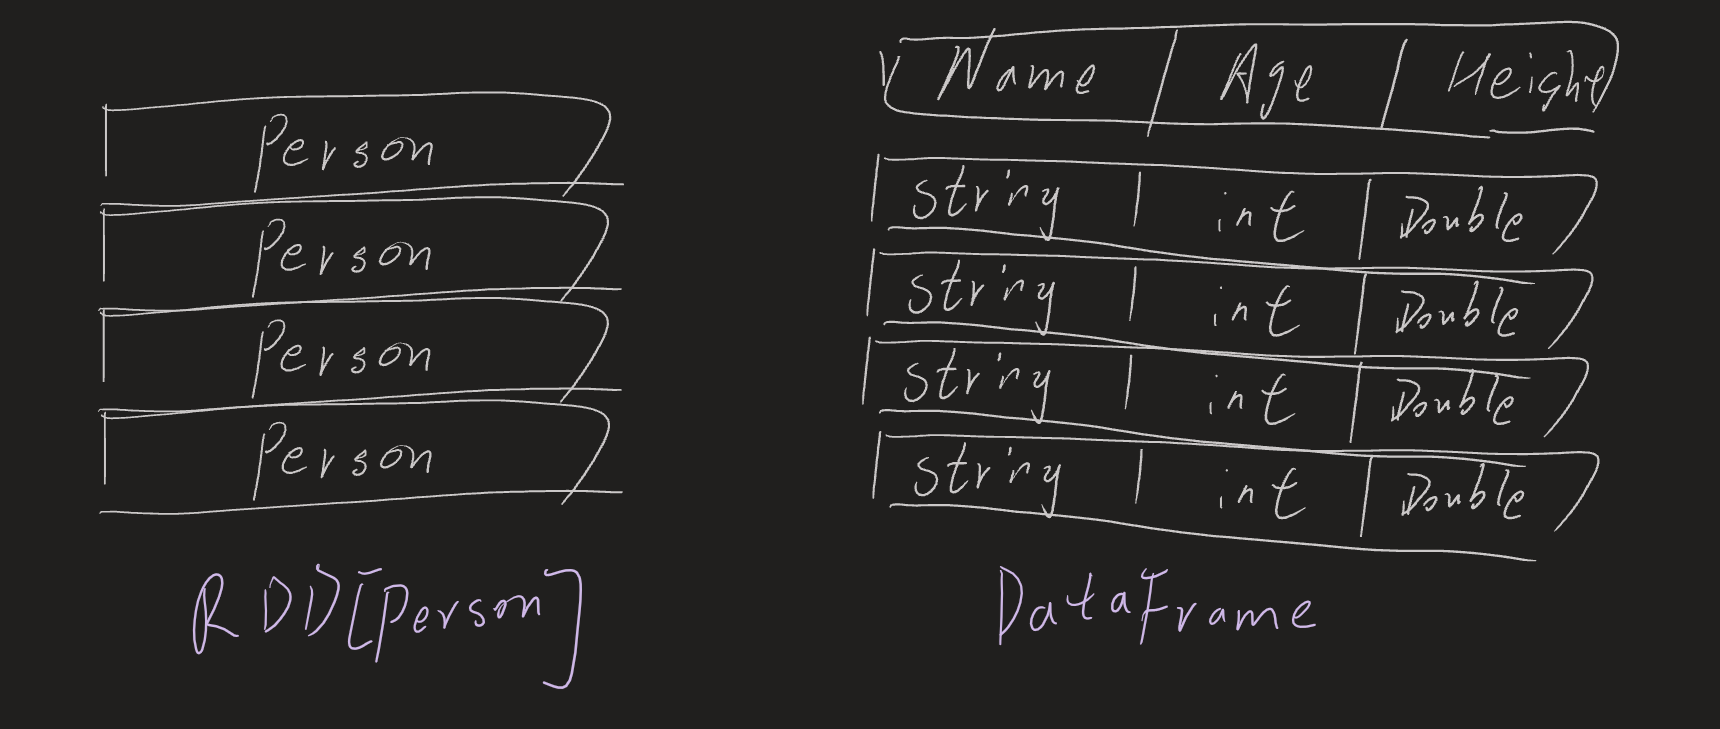 Person
Person
Person
Person
RDD[Person]
Name Age Height
String int Double
String int Double
String int Double
String int Double
DataFrame